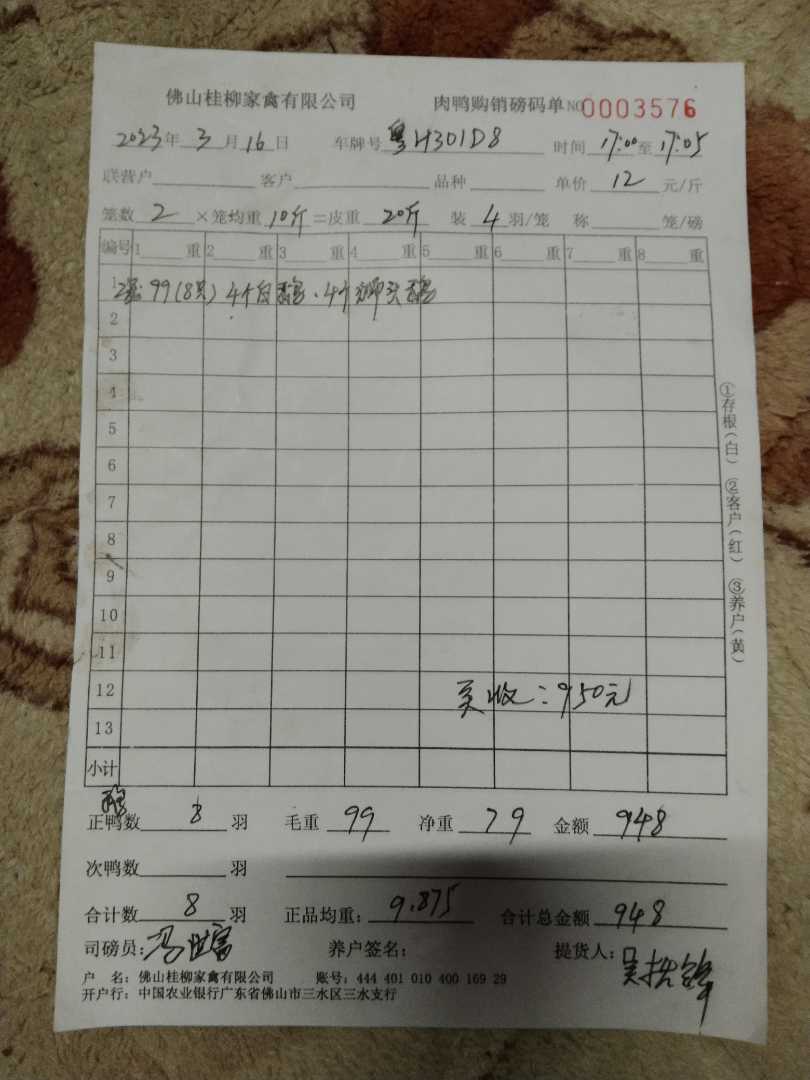 佛山桂柳家禽有限公司 肉鸭购销磅码单 NO 0003576
2023年 3月 16日 车牌号 粤H301D8 时间 17:00 至 17:05
联营户 客户 品种 单价 12 元/斤
笼数 2 ×笼均重 10斤 =皮重 20斤 装 4 羽/笼 称 笼/磅
编号 1 重 2 重 3 重 4 重 5 重 6 重 7 重 8 重
1 99(8只) 4个白鹅、4个狮头鹅
2
3
4
5
6
7
8
9
10
11
12 实收:950元
13
小计
鹅
正鸭数 8 羽 毛重 99 净重 79 金额 948
次鸭数 羽
合计数 8 羽 正品均重: 9.875 合计总金额 948
司磅员: 养户签名: 提货人:
户 名: 佛山桂柳家禽有限公司 账号: 444 401 010 400 169 29
开户行: 中国农业银行广东省佛山市三水区三水支行
①存根(白) ②客户(红) ③养户(黄)